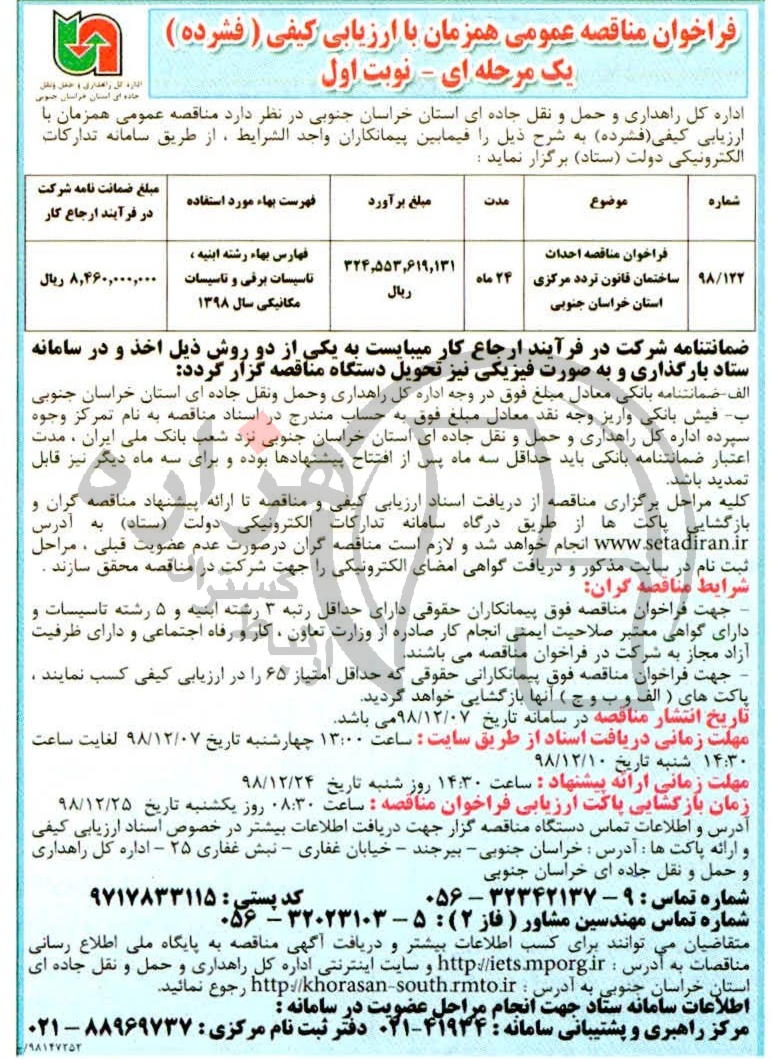 فراخوان مناقصه عمومی همزمان با ارزیابی کیفی ( فشرده )
یک مرحله ای - نوبت اول
اداره کل راهداری و حمل ونقل
جاده ای استان خراسان جنوبی
اداره کل راهداری و حمل و نقل جاده ای استان خراسان جنوبی در نظر دارد مناقصه عمومی همزمان با
ارزیابی کیفی(فشرده) به شرح ذیل را فیمابین پیمانکاران واجد الشرایط ، از طریق سامانه تدارکات
الکترونیکی دولت (ستاد) برگزار نماید :
شماره
موضوع
مدت
مبلغ برآورد
فهرست بهاء مورد استفاده
مبلغ ضمانت نامه شرکت
در فرآیند ارجاع کار
۹۸/۱۲۲
فراخوان مناقصه احداث
ساختمان قانون تردد مرکزی
استان خراسان جنوبی
۲۴ ماه
۳۲۴,۵۵۳,۶۱۹,۱۳۱
ریال
فهارس بهاء رشته ابنیه ،
تاسیسات برقی و تاسیسات
مکانیکی سال ۱۳۹۸
۸,۴۶۰,۰۰۰,۰۰۰ ریال
ضمانتنامه شرکت در فرآیند ارجاع کار میبایست به یکی از دو روش ذیل اخذ و در سامانه
ستاد بارگذاری و به صورت فیزیکی نیز تحویل دستگاه مناقصه گزار گردد:
الف-ضمانتنامه بانکی معادل مبلغ فوق در وجه اداره کل راهداری وحمل ونقل جاده ای استان خراسان جنوبی
ب- فیش بانکی واریز وجه نقد معادل مبلغ فوق به حساب مندرج در اسناد مناقصه به نام تمرکز وجوه
سپرده اداره کل راهداری و حمل و نقل جاده ای استان خراسان جنوبی نزد شعب بانک ملی ایران ، مدت
اعتبار ضمانتنامه بانکی باید حداقل سه ماه پس از افتتاح پیشنهادها بوده و برای سه ماه دیگر نیز قابل
تمدید باشد.
کلیه مراحل برگزاری مناقصه از دریافت اسناد ارزیابی کیفی و مناقصه تا ارائه پیشنهاد مناقصه گران و
بازگشایی پاکت ها از طریق درگاه سامانه تدارکات الکترونیکی دولت (ستاد) به آدرس
www.setadiran.ir انجام خواهد شد و لازم است مناقصه گران درصورت عدم عضویت قبلی ، مراحل
ثبت نام در سایت مذکور و دریافت گواهی امضای الکترونیکی را جهت شرکت در مناقصه محقق سازند .
شرایط مناقصه گران:
- جهت فراخوان مناقصه فوق پیمانکاران حقوقی دارای حداقل رتبه ۳ رشته ابنیه و ۵ رشته تاسیسات و
دارای گواهی معتبر صلاحیت ایمنی انجام کار صادره از وزارت تعاون ، کار و رفاه اجتماعی و دارای ظرفیت
آزاد مجاز به شرکت در فراخوان مناقصه می باشند.
- جهت فراخوان مناقصه فوق پیمانکارانی حقوقی که حداقل امتیاز ۶۵ را در ارزیابی کیفی کسب نمایند ،
پاکت های ( الف و ب و ج ) آنها بازگشایی خواهد گردید.
تاریخ انتشار مناقصه در سامانه تاریخ ۹۸/۱۲/۰۷می باشد.
مهلت زمانی دریافت اسناد از طریق سایت : ساعت ۱۳:۰۰ چهارشنبه تاریخ ۹۸/۱۲/۰۷ لغایت ساعت
۱۴:۳۰ شنبه تاریخ ۹۸/۱۲/۱۰
مهلت زمانی ارائه پیشنهاد : ساعت ۱۴:۳۰ روز شنبه تاریخ ۹۸/۱۲/۲۴
زمان بازگشایی پاکت ارزیابی فراخوان مناقصه : ساعت ۰۸:۳۰ روز یکشنبه تاریخ ۹۸/۱۲/۲۵
آدرس و اطلاعات تماس دستگاه مناقصه گزار جهت دریافت اطلاعات بیشتر در خصوص اسناد ارزیابی کیفی
و ارائه پاکت ها : آدرس : خراسان جنوبی- بیرجند - خیابان غفاری - نبش غفاری ۲۵ - اداره کل راهداری
و حمل و نقل جاده ای خراسان جنوبی
شماره تماس : ۹ - ۳۲۳۴۲۱۳۷ - ۰۵۶ کد پستی : ۹۷۱۷۸۳۳۱۱۵
شماره تماس مهندسین مشاور ( فاز ۲ ) : ۵ - ۳۲۰۲۳۱۰۳ - ۰۵۶
متقاضیان می توانند برای کسب اطلاعات بیشتر و دریافت آگهی مناقصه به پایگاه ملی اطلاع رسانی
مناقصات به آدرس : http://iets.mporg.ir و سایت اینترنتی اداره کل راهداری و حمل و نقل جاده ای
استان خراسان جنوبی به آدرس : http://khorasan-south.rmto.ir رجوع نمائید.
اطلاعات سامانه ستاد جهت انجام مراحل عضویت در سامانه :
مرکز راهبری و پشتیبانی سامانه : ۴۱۹۳۴-۰۲۱ دفتر ثبت نام مرکزی : ۸۸۹۶۹۷۳۷ - ۰۲۱
۹۸۱۴۷۲۵۲/
هزاره